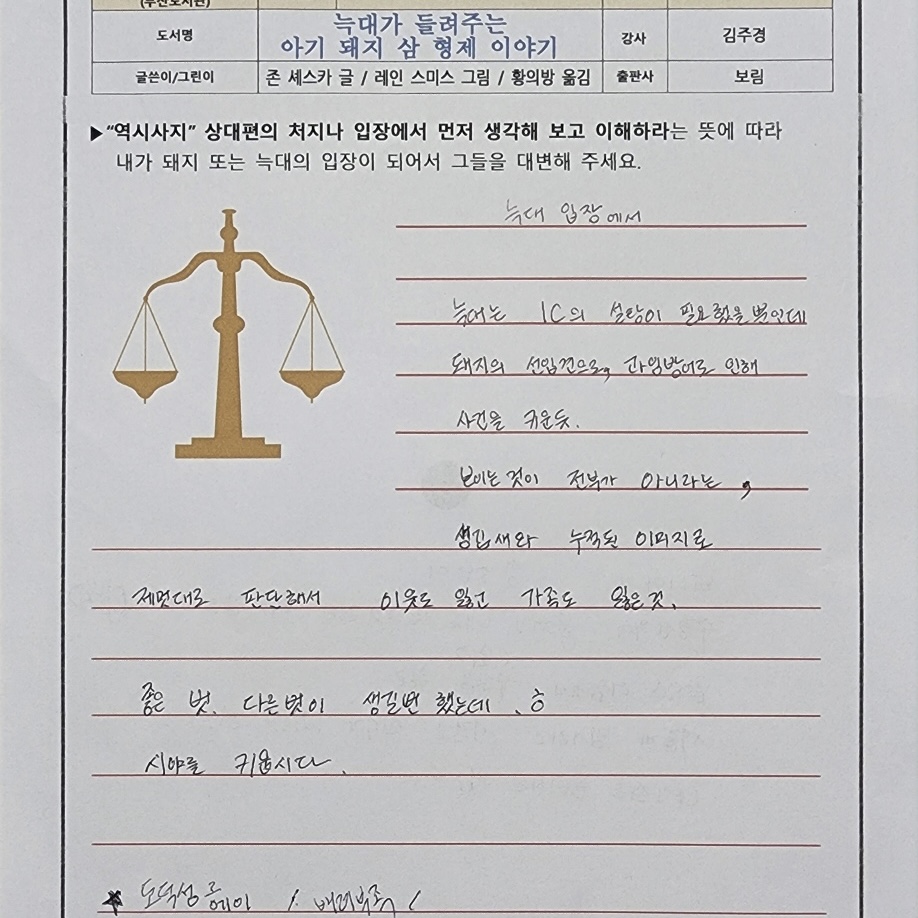 (부산도서관)
도서명 늑대가 들려주는 아기 돼지 삼 형제 이야기 강사 김주경
글쓴이/그린이 존 셰스카 글 / 레인 스미스 그림 / 황의방 옮김 출판사 보림
▶"역시사지" 상대편의 처지나 입장에서 먼저 생각해 보고 이해하라는 뜻에 따라
내가 돼지 또는 늑대의 입장이 되어서 그들을 대변해 주세요.
늑대 입장에서
늑대는 1C의 설탕이 필요했을뿐인데
돼지의 선입견으로, 과잉방어로 인해
사건을 키운듯.
보이는 것이 전부가 아니라는,
생김새와 누적된 이미지로
제멋대로 판단해서 이웃도 잃고 가족도 잃은 것.
좋은 벗. 다른 벗이 생길뻔 했는데.
시야를 키웁시다.
★ 도덕성 배려부족